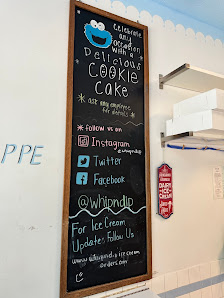 Celebrate
any
occasion
with a
Delicious
COOKIE
CAKE
* ask any employee
for details *
* follow us on
Instagram
@whipndip
Twitter
Facebook
@whipndip
For Ice Cream
Updates Follow Us
www.whipndipicecream
orders.com
PPE
DAIRY
ICE
CREAM